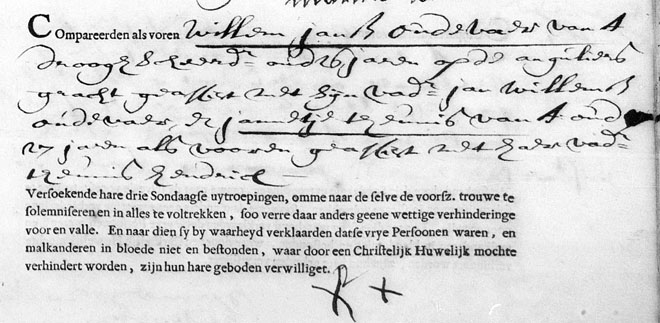 Compareerden als voren Willem Jansz Oudevaer van A
droogscheerdr oud 26 jaren op de anguliers
gracht geassist met zijn vadr Jan Willemsz
oudevaer & Jannetje Theunis van A oud
27 jaren als vooren geassist met haer vadr
Theunis Hendrick
Versoekende hare drie Sondaagse uytroepingen, omme naar de selve de voorsz. trouwe te
solemniseren en in alles te voltrekken, soo verre daar anders geene wettige verhinderinge
voor en valle. En naar dien sy by waarheyd verklaarden datse vrye Persoonen waren, en
malkanderen in bloede niet en bestonden, waar door een Christelijk Huwelijk mochte
verhindert worden, zijn hun hare geboden verwilliget.